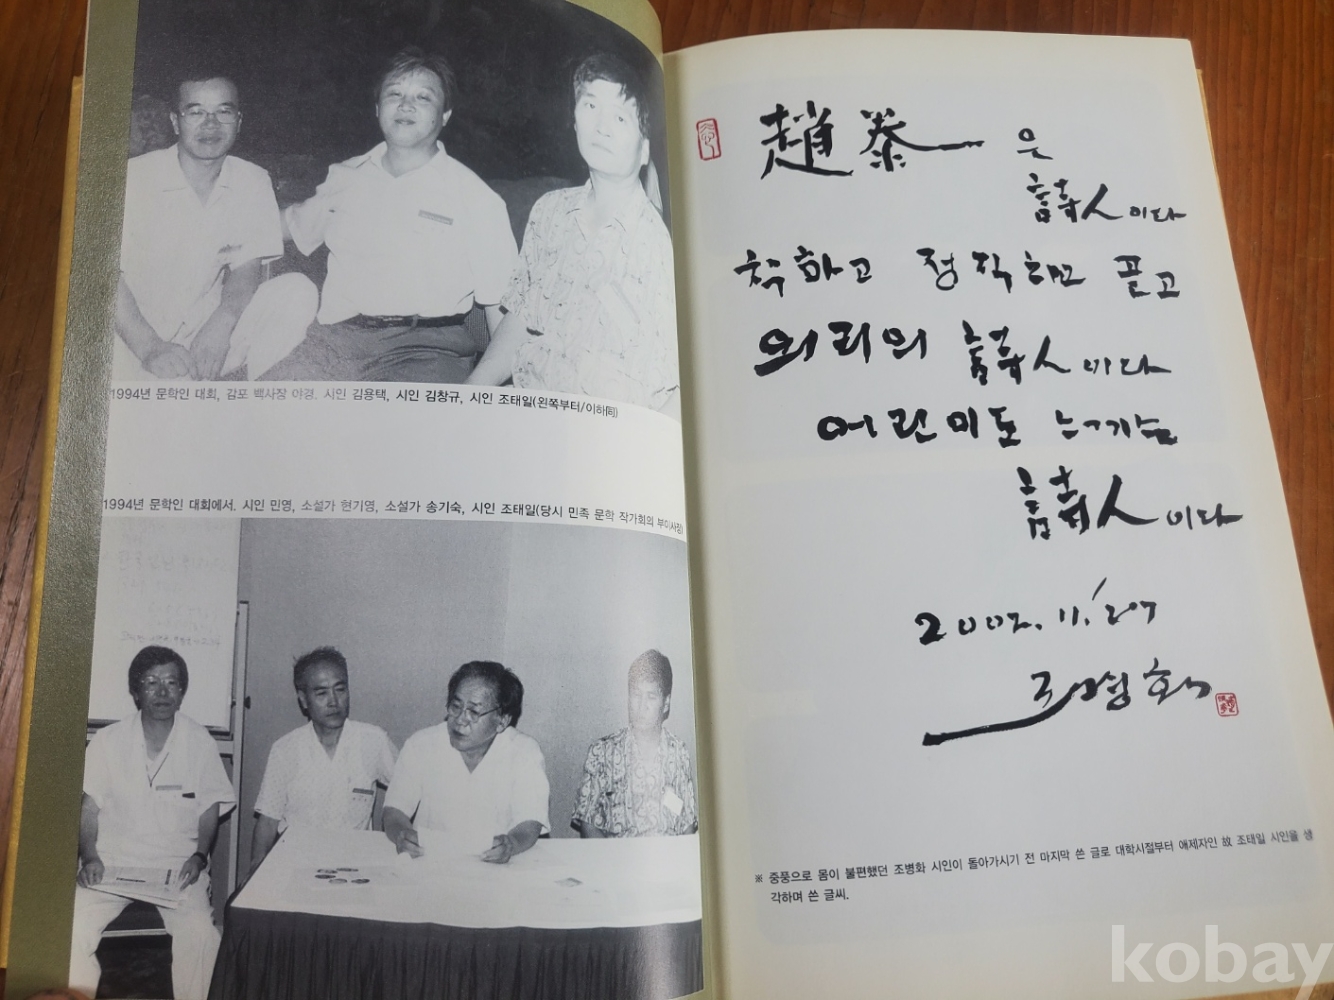 1994년 문학인 대회, 감포 백사장 야경. 시인 김용택, 시인 김창규, 시인 조태일(왼쪽부터/이하同)
1994년 문학인 대회에서. 시인 민영, 소설가 현기영, 소설가 송기숙, 시인 조태일(당시 민족 문학 작가회의 부이사장)
趙泰一은
詩人이다
착하고 정직하고 곧고
의리의 詩人이다
어린미도 느끼는
詩人이다
2002. 11. 27
조병화
※ 중풍으로 몸이 불편했던 조병화 시인이 돌아가시기 전 마지막 쓴 글로 대학시절부터 애제자인 故 조태일 시인을 생
각하며 쓴 글씨.
kobay